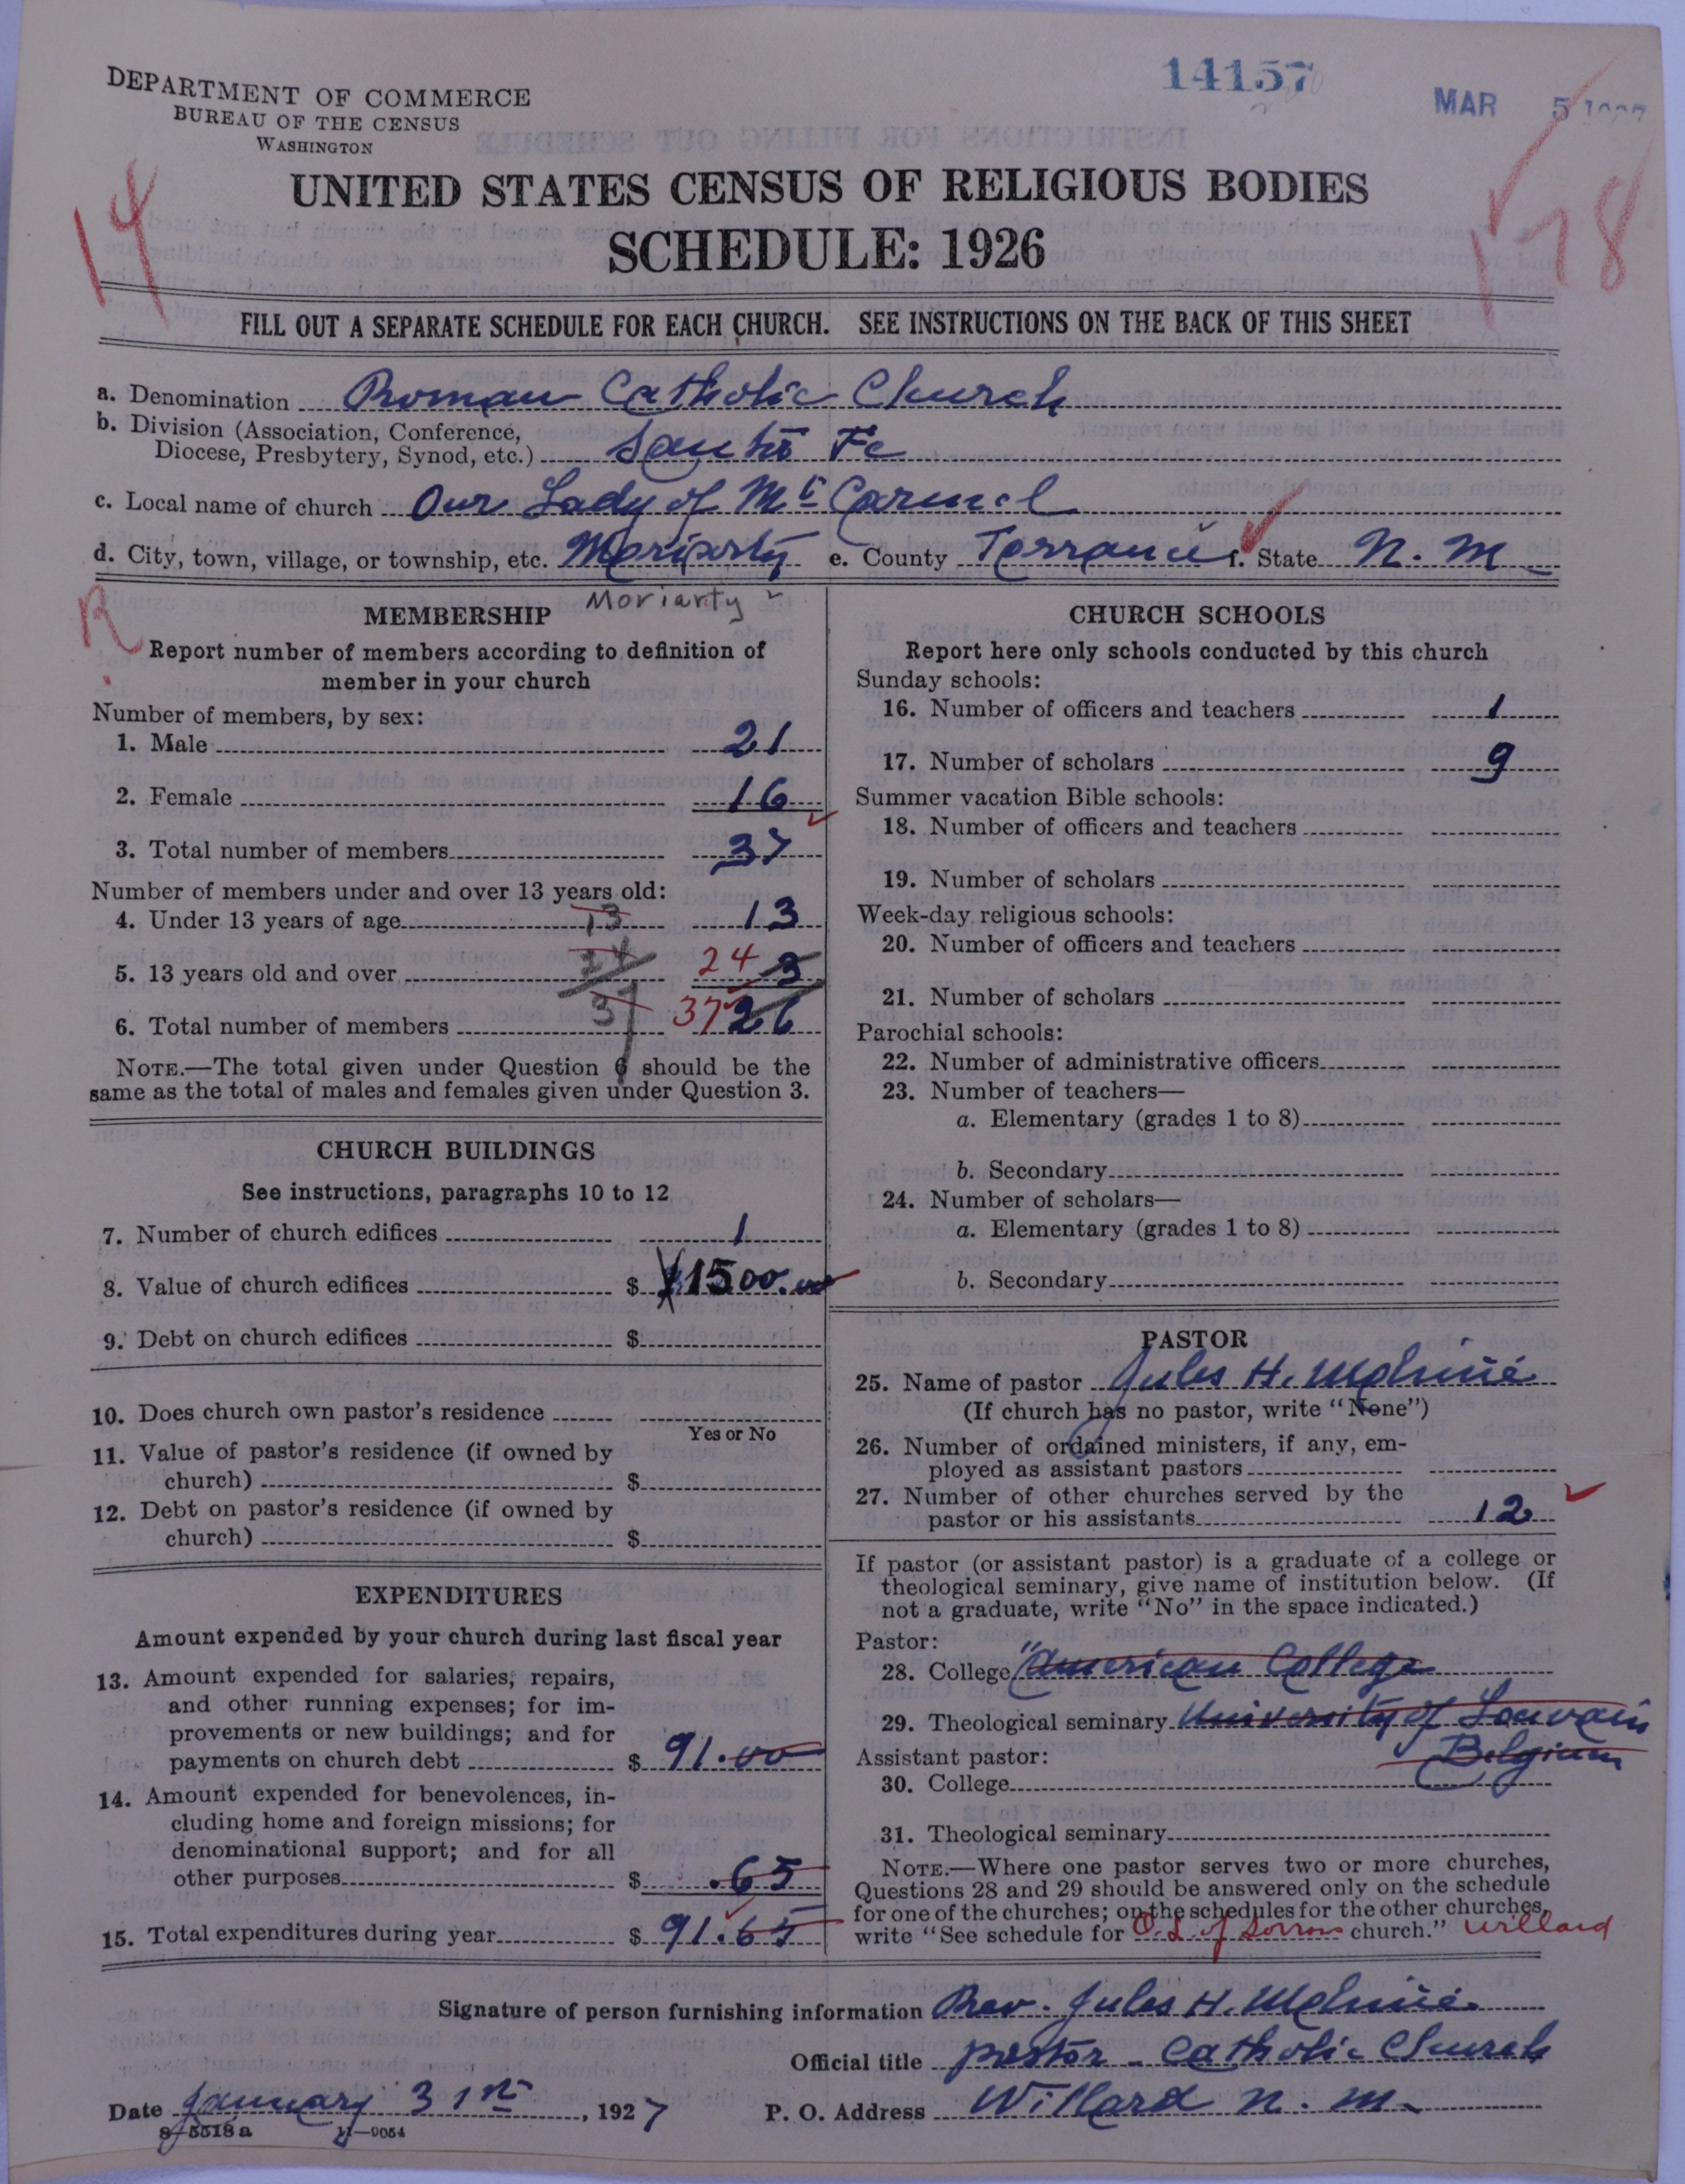 14157
MAR 5 1927
DEPARTMENT OF COMMERCE
BUREAU OF THE CENSUS
WASHINGTON
14
178
UNITED STATES CENSUS OF RELIGIOUS BODIES
SCHEDULE: 1926
FILL OUT A SEPARATE SCHEDULE FOR EACH CHURCH. SEE INSTRUCTIONS ON THE BACK OF THIS SHEET
a. Denomination Roman Catholic Church
b. Division (Association, Conference,
Diocese, Presbytery, Synod, etc.) Santa Fe
c. Local name of church Our Lady of Mt Carmel
d. City, town, village, or township, etc. Moriarty e. County Torrance f. State N. M
Moriarty
R
MEMBERSHIP
Report number of members according to definition of
member in your church
Number of members, by sex:
1. Male 21
2. Female 16
3. Total number of members 37
Number of members under and over 13 years old:
4. Under 13 years of age 13 13
5. 13 years old and over 24 24 3
6. Total number of members 37 37 26
NOTE.—The total given under Question 6 should be the
same as the total of males and females given under Question 3.
CHURCH BUILDINGS
See instructions, paragraphs 10 to 12
7. Number of church edifices 1
8. Value of church edifices $ 1500.00
9. Debt on church edifices $
10. Does church own pastor's residence
Yes or No
11. Value of pastor's residence (if owned by
church) $
12. Debt on pastor's residence (if owned by
church) $
EXPENDITURES
Amount expended by your church during last fiscal year
13. Amount expended for salaries, repairs,
and other running expenses; for im-
provements or new buildings; and for
payments on church debt $ 91.00
14. Amount expended for benevolences, in-
cluding home and foreign missions; for
denominational support; and for all
other purposes $ .65
15. Total expenditures during year $ 91.65
CHURCH SCHOOLS
Report here only schools conducted by this church
Sunday schools:
16. Number of officers and teachers 1
17. Number of scholars 9
Summer vacation Bible schools:
18. Number of officers and teachers
19. Number of scholars
Week-day religious schools:
20. Number of officers and teachers
21. Number of scholars
Parochial schools:
22. Number of administrative officers
23. Number of teachers—
a. Elementary (grades 1 to 8)
b. Secondary
24. Number of scholars—
a. Elementary (grades 1 to 8)
b. Secondary
PASTOR
25. Name of pastor Jules H. Molinié
(If church has no pastor, write "None")
26. Number of ordained ministers, if any, em-
ployed as assistant pastors
27. Number of other churches served by the
pastor or his assistants 12
If pastor (or assistant pastor) is a graduate of a college or
theological seminary, give name of institution below. (If
not a graduate, write "No" in the space indicated.)
Pastor:
28. College "American College
29. Theological seminary University of Louvain
Belgium
Assistant pastor:
30. College
31. Theological seminary
NOTE.—Where one pastor serves two or more churches,
Questions 28 and 29 should be answered only on the schedule
for one of the churches; on the schedules for the other churches,
write "See schedule for O. L. of Sorrows church." Willard
Signature of person furnishing information Rev. Jules H. Molinié
Official title pastor - Catholic Church
Date January 31st, 1927 P. O. Address Willard N. M.
8-5518 a 11-9054